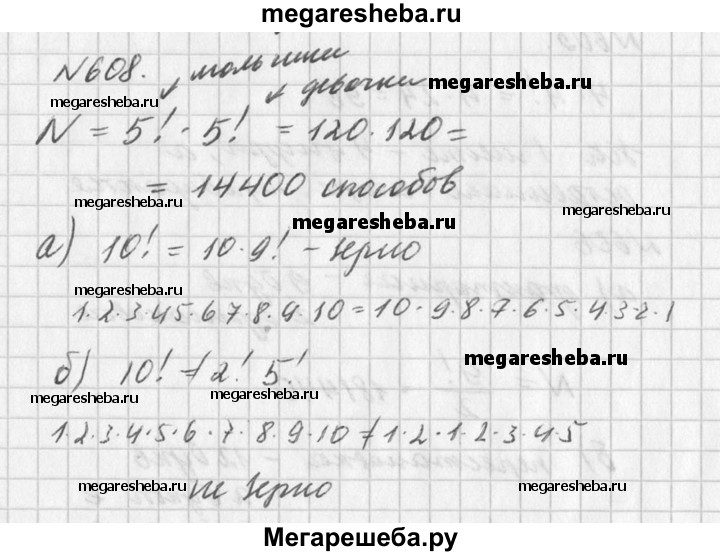 megaresheba.ru
№608. мальчики
девочки
megaresheba.ru
megaresheba.ru
N = 5! · 5! = 120 · 120 =
= 14400 способов
megaresheba.ru
megaresheba.ru
megaresheba.ru
а) 10! = 10 · 9! – верно
1·2·3·4·5·6·7·8·9·10 = 10·9·8·7·6·5·4·3·2·1
megaresheba.ru
megaresheba.ru
б) 10! ≠ 2! 5!
megaresheba.ru
megaresheba.ru
1·2·3·4·5·6·7·8·9·10 ≠ 1·2·1·2·3·4·5
не верно
megaresheba.ru
megaresheba.ru
Мегарешеба.ру